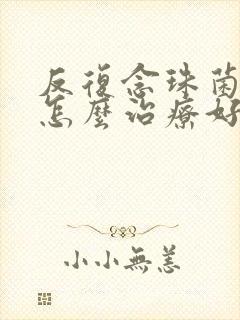 反復念珠菌
怎麼治療好
小小無恙